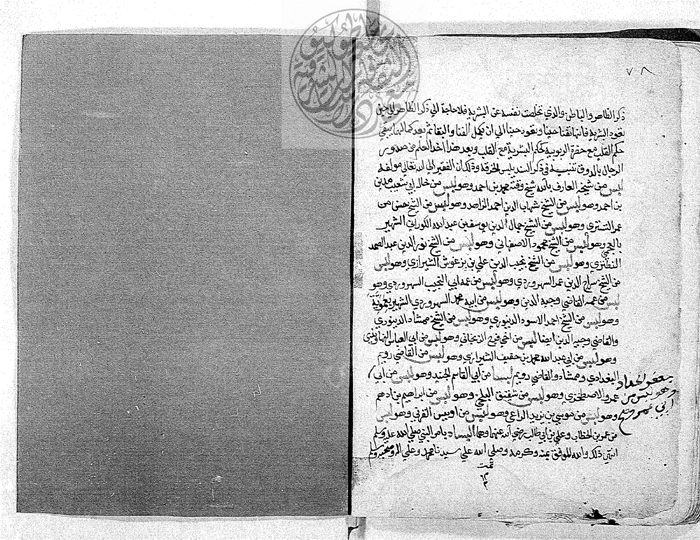 ٧٨
ذكر الظاهر والباطن والذي تخلصت نفسه عن البشرية فلا حاجة الي ذكر الظاهر الي حين
حكم القلب مع حضرة الربوبية كحكم البشرية مع القلب وبعد هذا اخذ العلم من صدور
الرجال بالذوق تنبيه في ذكر السند بلبس الخرقة وذلك ان الفقير الي الله تعالي مؤلفه
لبس من شيخه العارف بالله شيخ وقته محمد بن احمد وهو لبس من خاله ابي شعيب مدين
بن احمد وهو لبس من الشيخ شهاب الدين احمد الزاهد وهو لبس من الشيخ حسن من
عمر التستري وهو لبس من الشيخ جمال الدين يوسف بن عبد الله الكوراني الشهير
بالعجمي وهو لبس من الشيخ محمود الاصفهاني وهو لبس من الشيخ نور الدين عبد الصمد
النطنزي وهو لبس من الشيخ نجيب الدين علي بن بزغوش الشيرازي وهو لبس
من الشيخ سراج الدين عمر السهروردي وهو لبس من عمه ابي النجيب السهروردي وهو
لبس من عمه القاضي وجيه الدين وهو لبس من ابيه محمد السهروردي الشهير بعموية
وهو لبس من الشيخ احمد الاسود الدينوري وهو لبس من الشيخ ممشاد الدينوري
والقاضي وجيه الدين ايضا لبس من اخي فرج الزنجاني وهو لبس من ابي العباس النهاوندي
وهو لبس من ابي عبد الله محمد بن خفيف الشيرازي وهو لبس من القاضي رويم
البغدادي وممشاد والقاضي رويم لبسا من ابي القاسم الجنيد وهو لبس من ابي
جعفر الحداد وهو لبس من ابي عمرو
عمرو الاصطخري وهو لبس من شقيق البلخي وهو لبس من ابراهيم بن ادهم
وهو لبس من موسي بن يزيد الراعي وهو لبس من اويس القرني وهو لبس
من عمر بن الخطاب وعلي بن ابي طالب رضي الله عنهما وهما البساه بامر النبي صلي الله عليه وسلم
انتهي ذلك والله الموفق بمنه وكرمه وصلي الله علي سيدنا محمد وعلي اله وصحبه وسلم
تمت